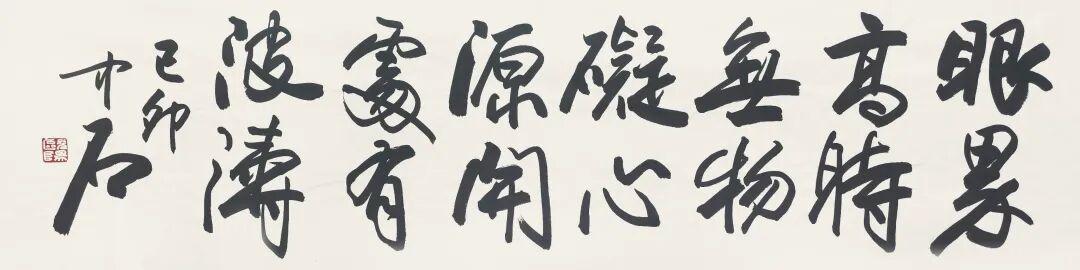 眼界
高時
無物
礙心
源開
處有
波濤
己卯
中石